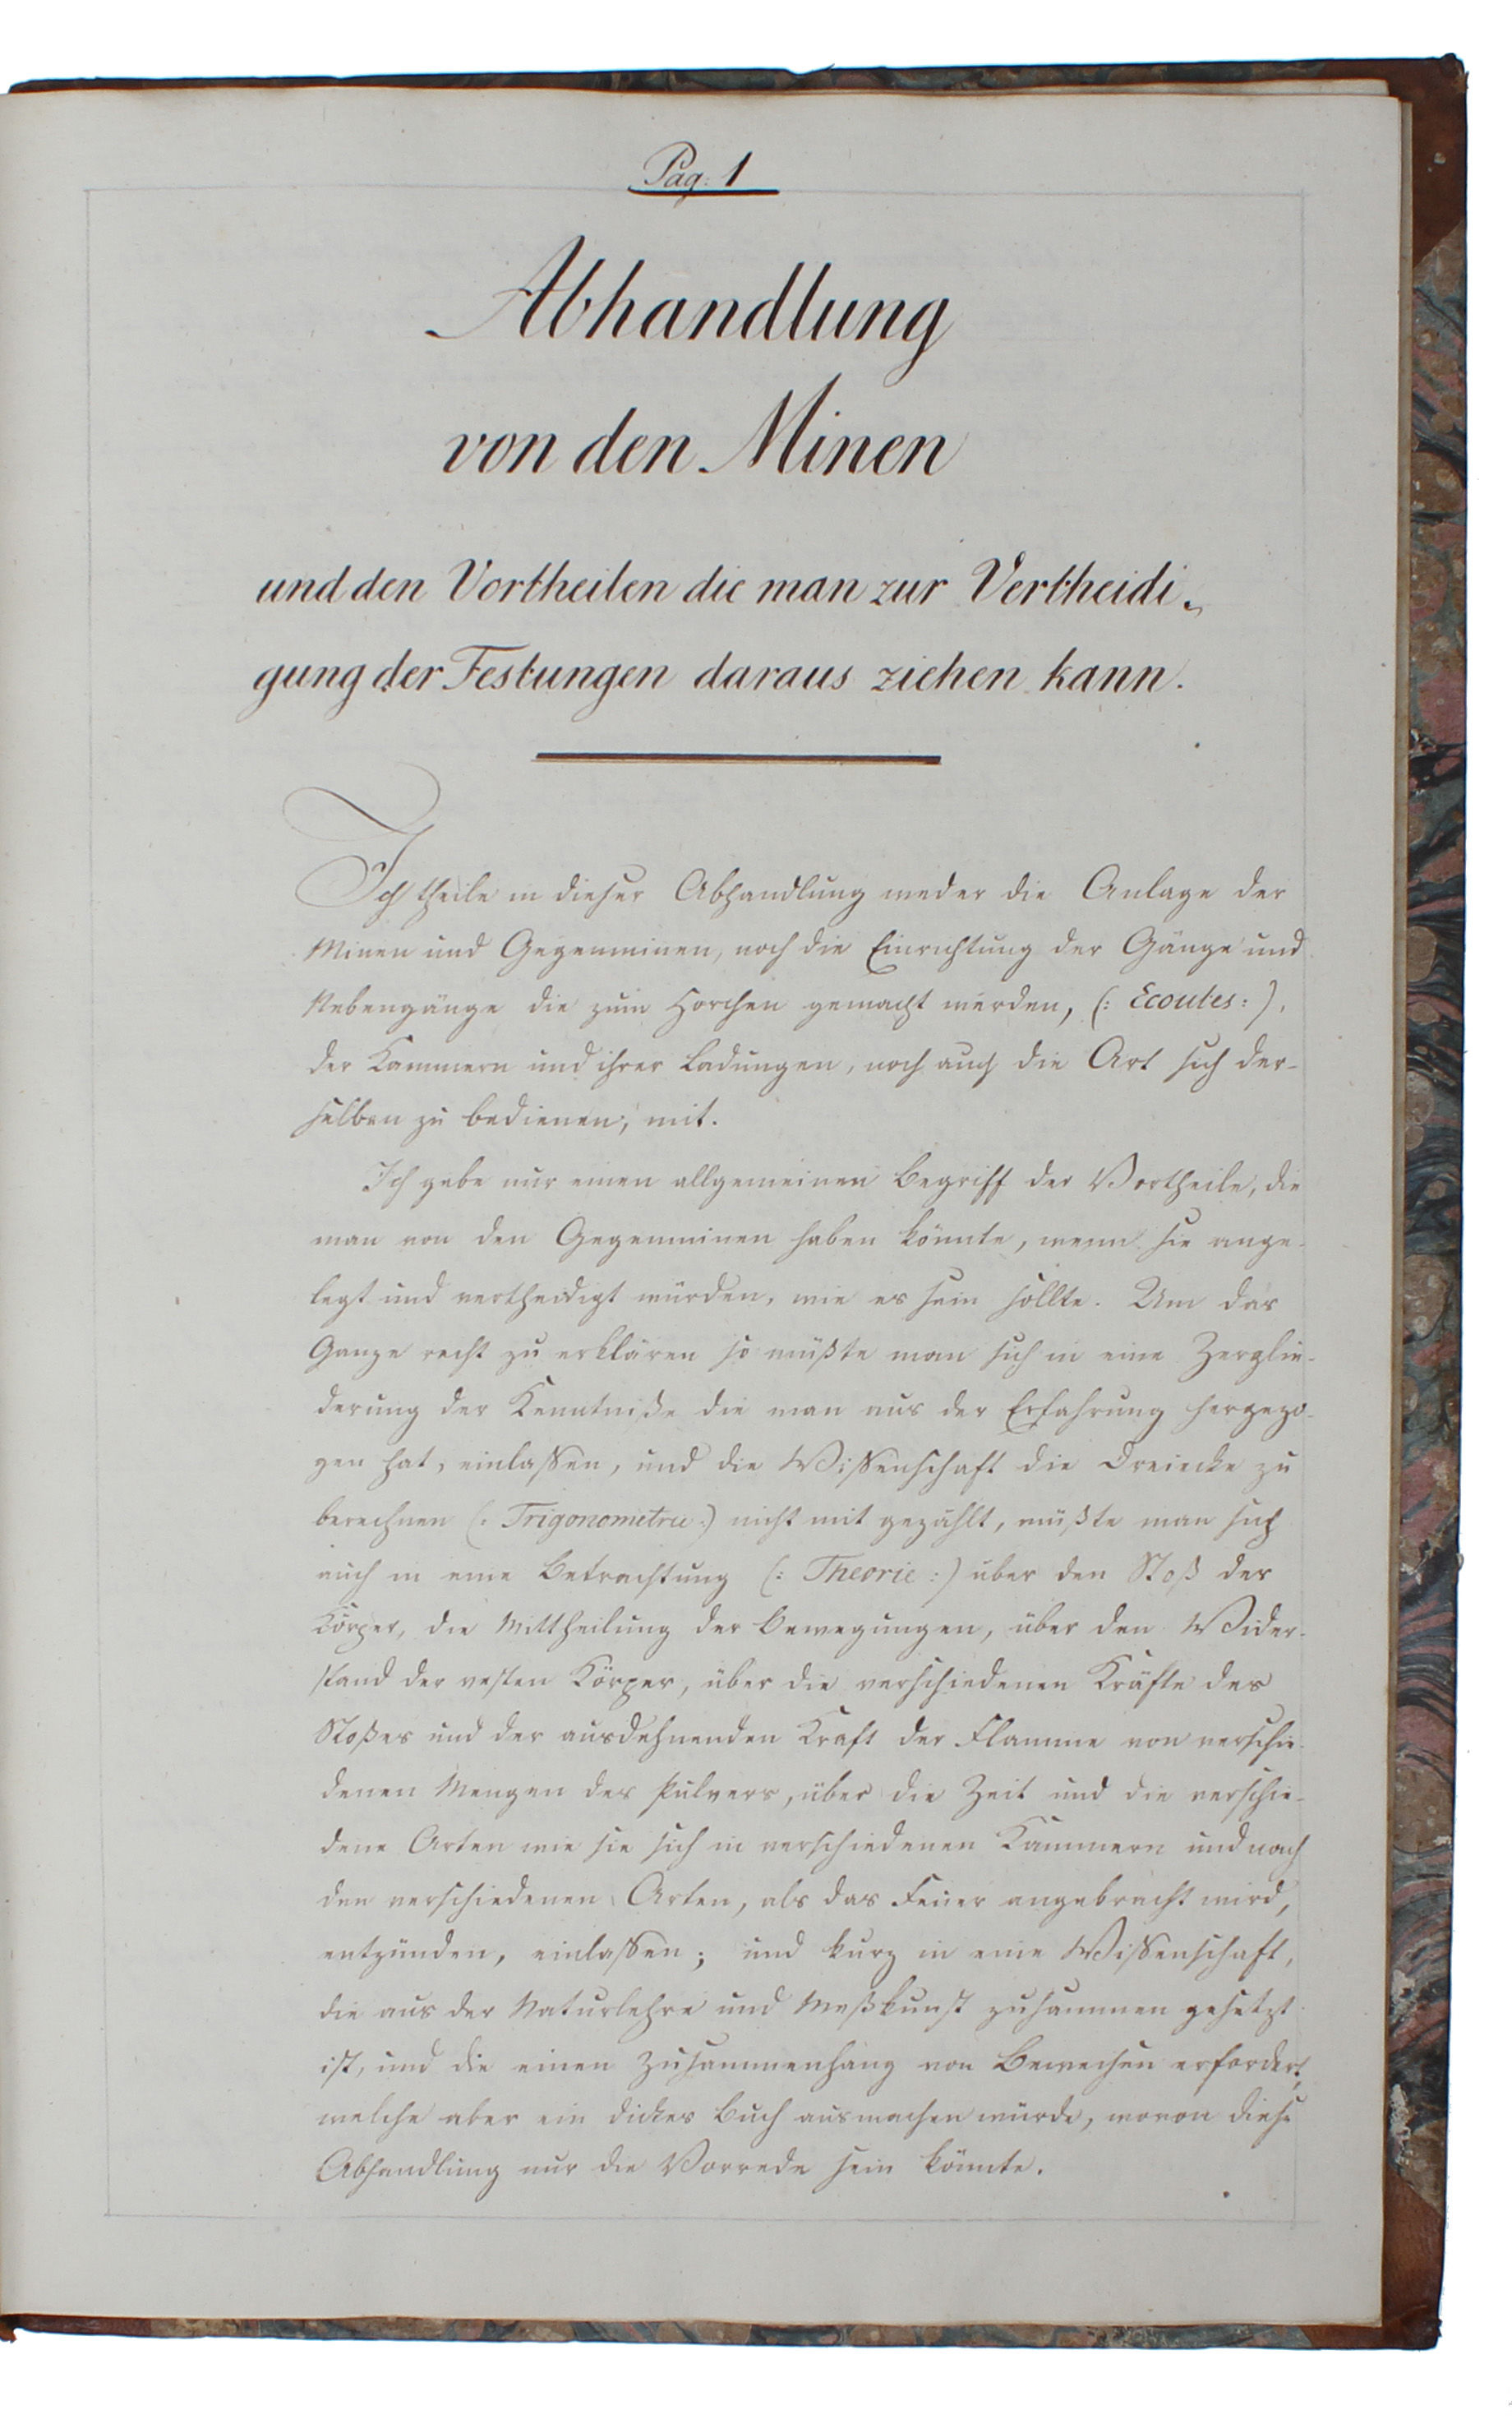 Pag: 1
Abhandlung
von den Minen
und den Vortheilen die man zur Vertheidi-
gung der Festungen daraus ziehen kann.
Ich theile in dieser Abhandlung weder die Anlage der
Minen und Gegenminen, noch die Einrichtung der Gänge und
Nebengänge die zum Horchen gemacht werden, (: Ecoutes :),
der Kammern und ihrer Ladungen, noch auch die Art sich der-
selben zu bedienen, mit.
Ich gebe nur einen allgemeinen Begriff der Vortheile, die
man von den Gegenminen haben könnte, wenn sie ange-
legt und vertheidigt würden, wie es sein sollte. Um das
Ganze recht zu erklären so müßte man sich in eine Zerglie-
derung der Kenntniße die man aus der Erfahrung hergezo-
gen hat, einlaßen, und die Wißenschaft die Dreiecke zu
berechnen (: Trigonometrie :) nicht mit gezählt, müßte man sich
auch in eine Betrachtung (: Theorie :) über den Stoß der
Körper, die Mittheilung der Bewegungen, über den Wider-
stand der vesten Körper, über die verschiedenen Kräfte des
Stoßes und der ausdehnenden Kraft der Flamme von verschie-
denen Mengen des Pulvers, über die Zeit und die verschie-
dene Arten wie sie sich in verschiedenen Kammern und nach
den verschiedenen Arten, als das Feuer angebracht wird,
entzünden, einlaßen; und kurz in eine Wißenschaft,
die aus der Naturlehre und Meßkunst zusammen gesetzt
ist, und die einen Zusammenhang von Beweisen erfordert,
welche aber ein dickes Buch ausmachen würde, wovon diese
Abhandlung nur die Vorrede sein könnte.